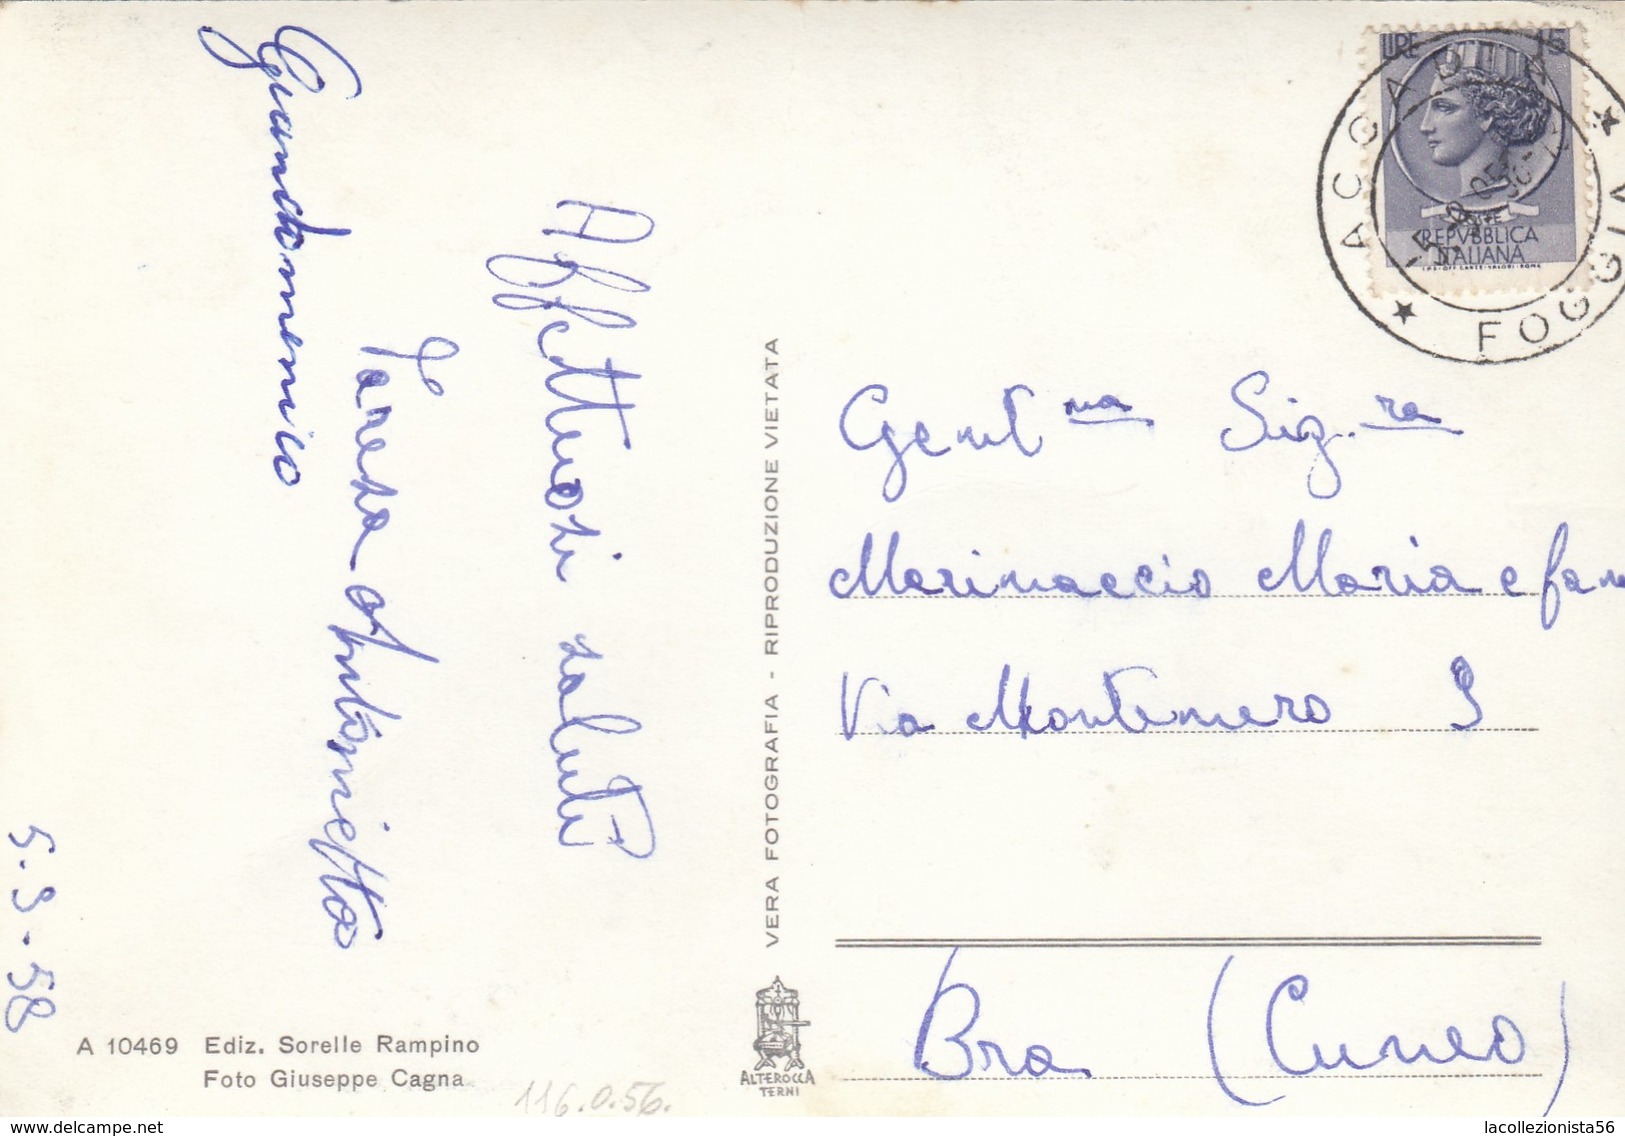 Affettuosi saluti
Antonietta
Giandomenico
5.9.58
A 10469 Ediz. Sorelle Rampino
Foto Giuseppe Cagna
116.0.56.
VERA FOTOGRAFIA - RIPRODUZIONE VIETATA
ALTEROCCA
TERNI
LIRE 15
REPVBBLICA
ITALIANA
I.P.S.-OFF. CARTE-VALORI-ROMA
ACCADIA
FOGGIA
Gent.ma Sig.ra
Marinaccio Maria e fam
Via Montenero 9
Bra (Cuneo)
delcampe.net
lacollezionista56